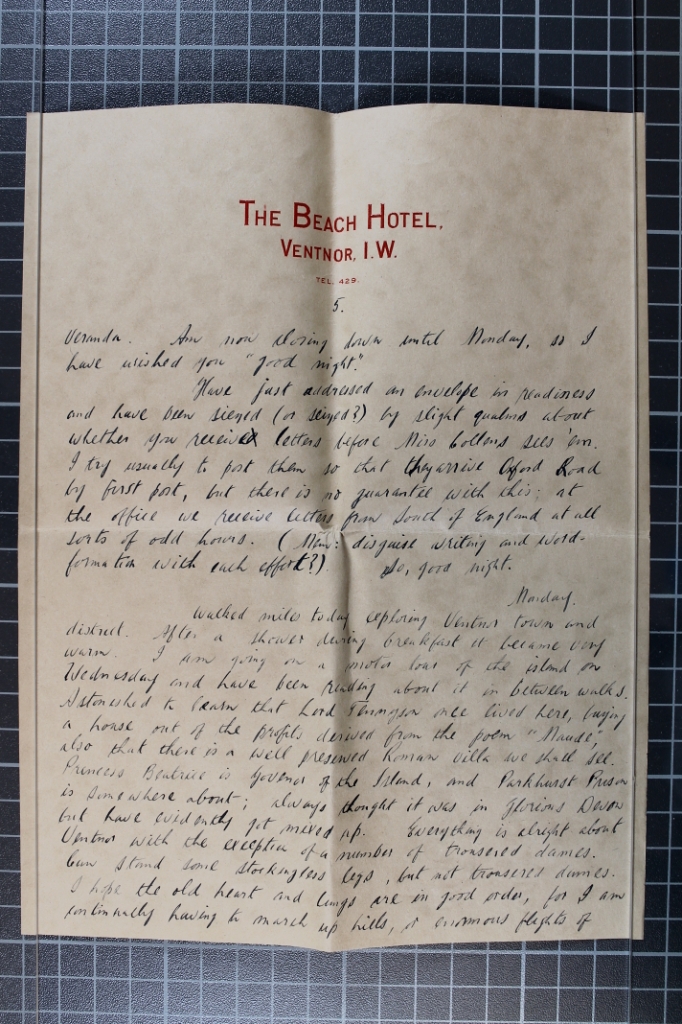 THE BEACH HOTEL,
VENTNOR, I.W.
TEL. 429.
5.
Veranda. Am now closing down until Monday, so I
have wished you "good night".
Have just addressed an envelope in readiness
and have been sieged (or seiged?) by slight qualms about
whether you receive letters before Miss Collens sees 'em.
I try usually to post them so that they arrive Oxford Road
by first post, but there is no guarantee with this: at
the office we receive letters from South of England at all
sorts of odd hours. (Mem: disguise writing and word-
formation with each effort?). So, good night.
Monday.
Walked miles today exploring Ventnor town and
district. After a shower during breakfast it became very
warm. I am going on a motor tour of the island on
Wednesday and have been reading about it in between walks.
Astonished to learn that Lord Tennyson once lived here, buying
a house out of the profits derived from the poem "Maude",
also that there is a well preserved Roman villa we shall see.
Princess Beatrice is Govenor of the Island, and Parkhurst Prison
is somewhere about; always thought it was in glorious Devon
but have evidently got mixed up. Everything is alright about
Ventnor with the exception of a number of trousered dames.
Can stand some stockingless legs, but not trousered dames.
I hope the old heart and lungs are in good order, for I am
continually having to march up hills, or enormous flights of